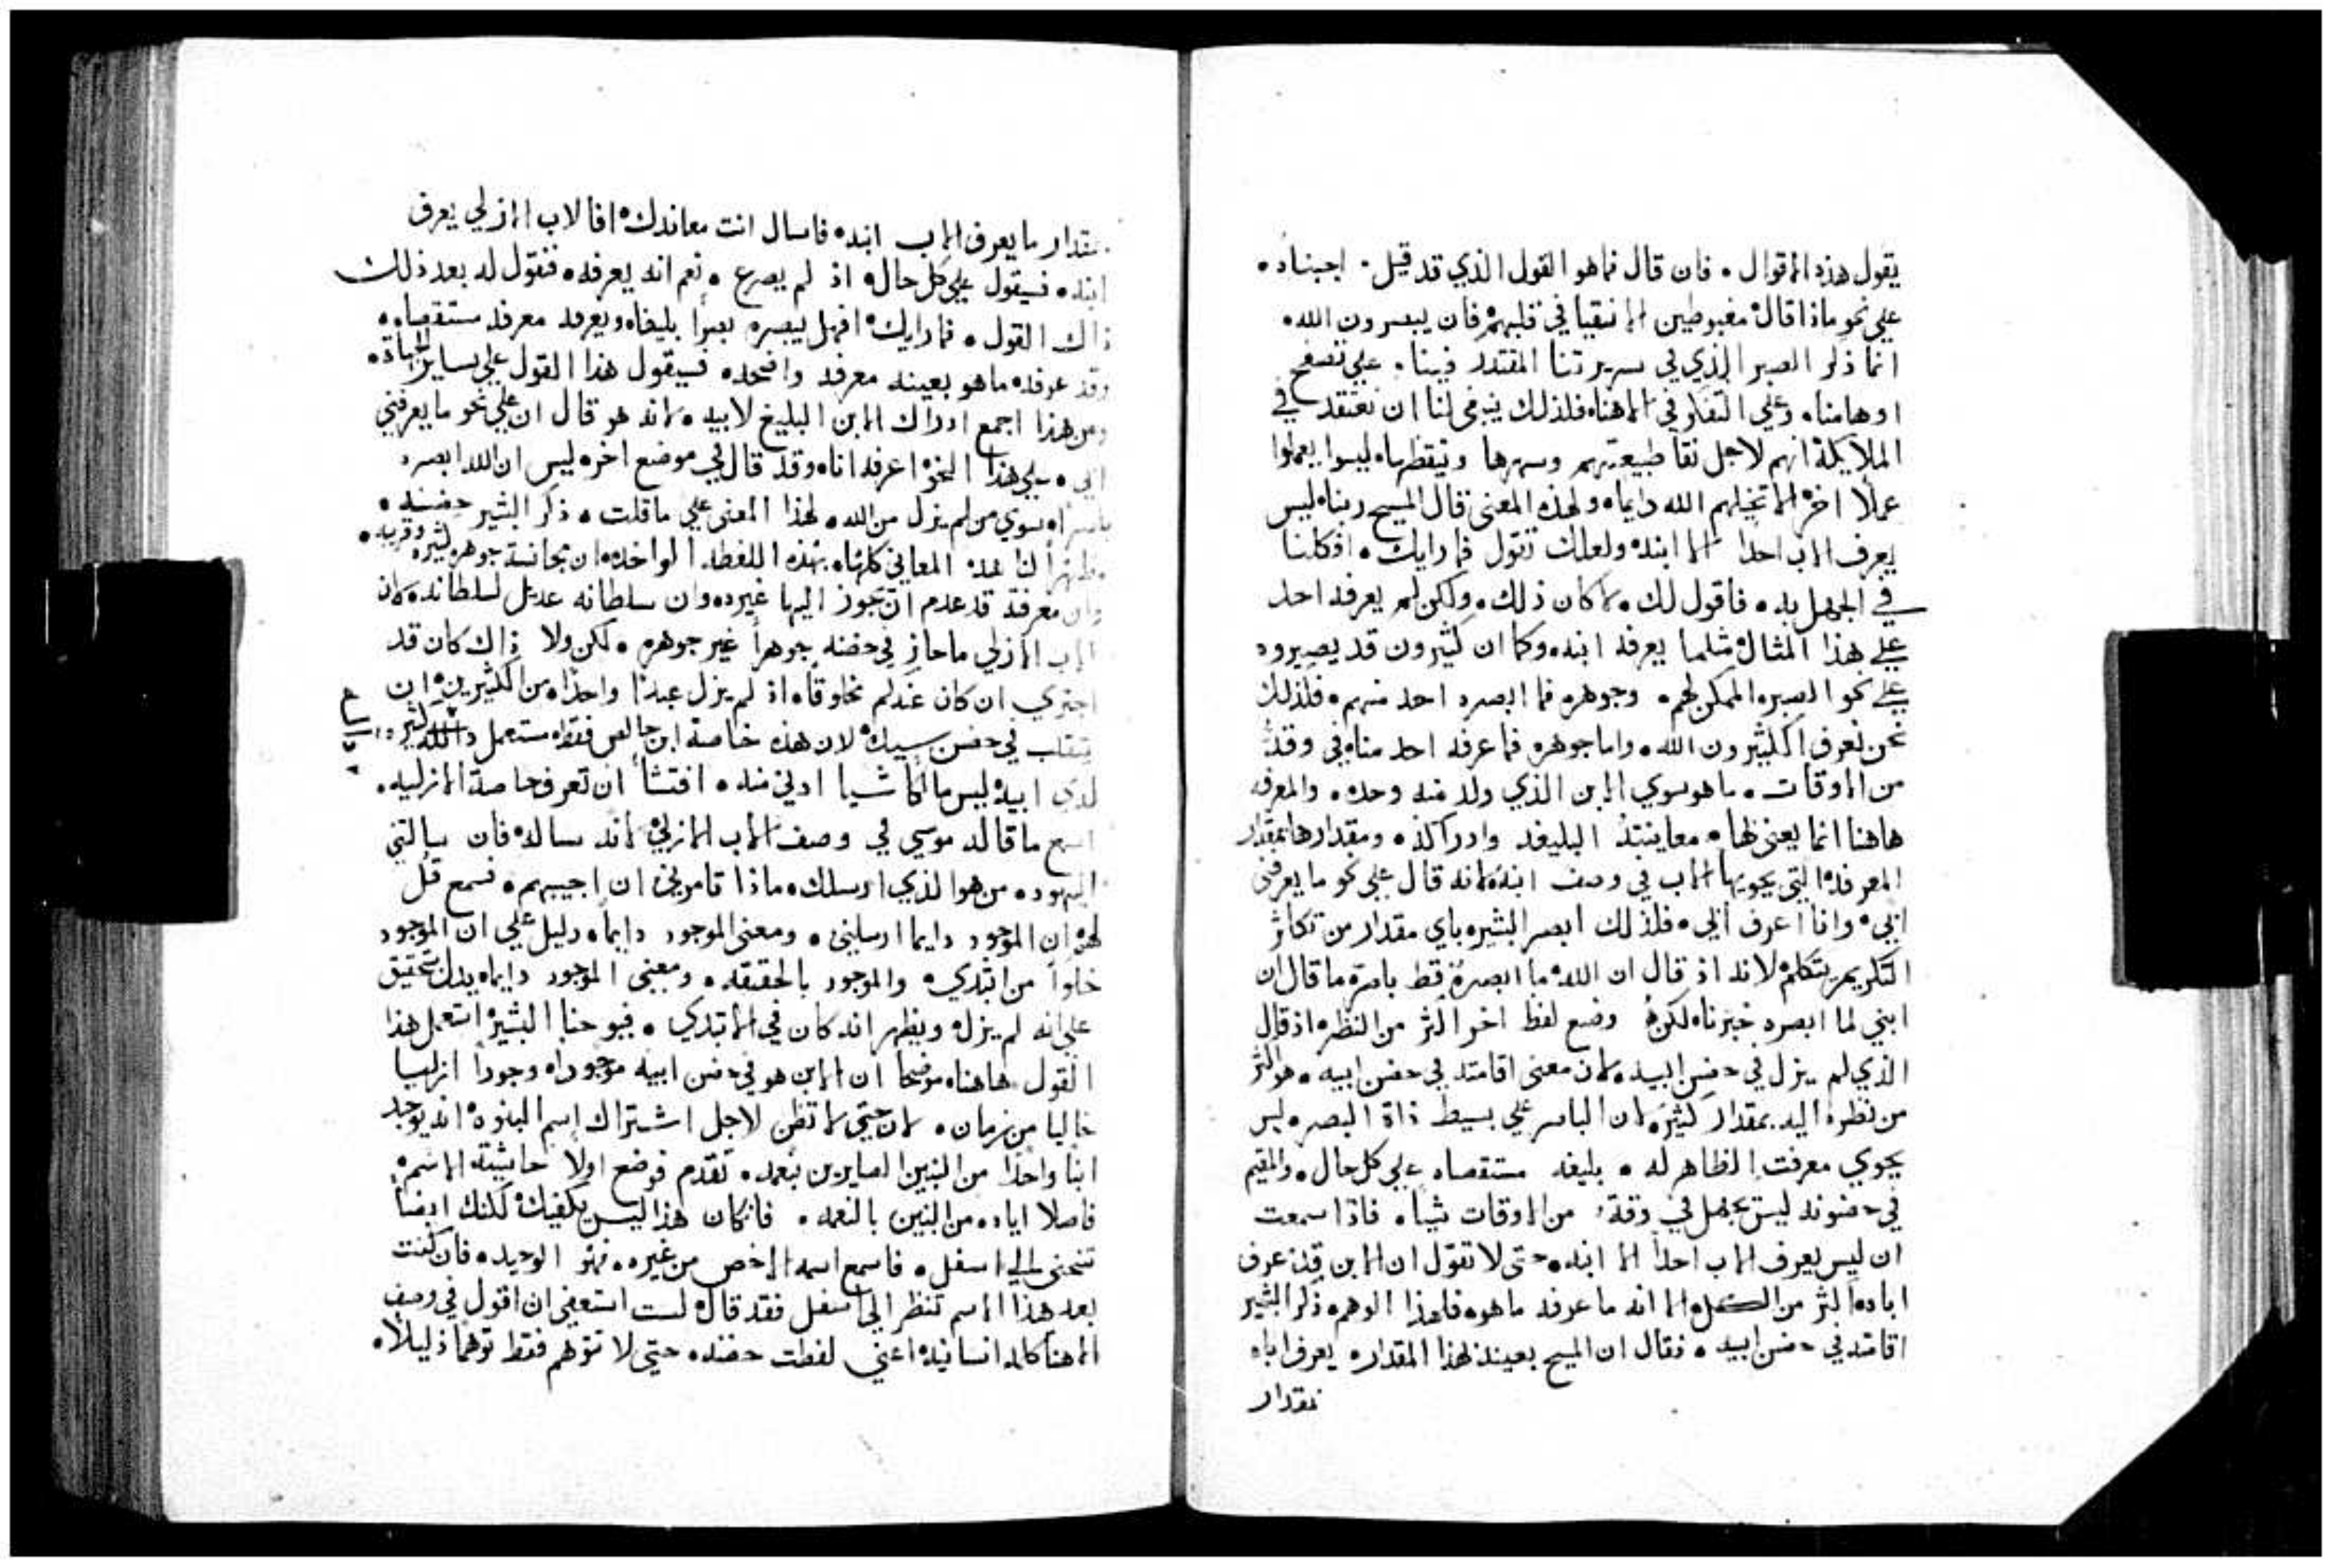 يقول هذه الاقوال ٠ فان قال فما هو القول الذي قد قيل ٠ اجبناه ٠
علي نحو ماذا قال مغبوطين الانقيا في قلبهم فان يبصرون الله ٠
انما ذكر البصر الذي في سريرتنا المقتدر فينا ٠ علي تصفح
اوهامنا ٠ وعلي التفكر في الاهنا ٠ فلذلك ينبغي لنا ان نعتقد في
الملايكة انهم لاجل نقا طبيعتهم وسهرها وتيقظها ٠ ليسوا يعملوا
عملا اخر الا تخيلهم الله دايما ٠ ولهذه المعني قال المسيح ربنا ٠ ليس
يعرف الاب احدا الا ابنه ٠ ولعلك تقول فما رايك ٠ افكلنا
في الجهل به ٠ فاقول لك ٠ لا كان ذلك ٠ ولكن لم يعرفه احد
علي هذا المثال مثلما يعرفه ابنه ٠ وكما ان كثيرون قد يصيروه
علي نحو البصره الممكن لهم ٠ وجوهره فما ابصره احد منهم ٠ فلذلك
نحن نعرف الكثيرون الله ٠ واما جوهره فما عرفه احد منا ٠ في وقت
من الاوقات ٠ ما هو سوي الابن الذي ولد منه وحده ٠ والمعرفه
هاهنا انما يعني لها ٠ معاينته البليغه وادراكه ٠ ومقدارها بمقدار
المعرفه التي يحويها الاب في وصف ابنه ٠ لانه قال علي نحو ما يعرفني
ابي ٠ وانا اعرف ابي ٠ فلذلك ابصر البشير ٠ باي مقدار من تكاثر
التكريم يتكلم ٠ لانه اذ قال ان الله ما ابصره قط باصره ما قال ان
ابني لما ابصره خبرنا ٠ لكن وضع لفظ اخر اكثر من النظر ٠ اذ قال
الذي لم يزل في حضن ابيه ٠ لان معني اقامته في حضن ابيه ٠ هو اكثر
من نظره اليه بمقدار كثير ٠ لان الناظر علي بسيط ذاة البصر ٠ ليس
يحوي معرفت الظاهر له ٠ بليغه مستقصاه علي كل حال ٠ والمقيم
في حضونه ليس يجهل في وقت من الاوقات شيا ٠ فاذا سمعت
ان ليس يعرف الاب احدا الا ابنه ٠ حتي لا تقول ان الابن قد عرف
اباه اكثر من الكل ٠ الا انه ما عرفه ما هو ٠ فلهذا الوهم ذكر البشير
اقامته في حضن ابيه ٠ فقال ان المسيح بعينه لهذا المقدار ٠ يعرف اباه
بمقدار
بمقدار ما يعرف الاب ابنه ٠ فاسال انت معاندك ٠ افالاب الازلي يعرف
ابنه ٠ فسيقول علي كل حال ٠ اذ لم يصرع ٠ نعم انه يعرفه ٠ فنقول له بعد ذلك
ذاك القول ٠ فما رايك ٠ افهل يبصره بصرا بليغا ٠ ويعرفه معرفه مستقصاه ٠
وقد عرفه ما هو بعينه معرفه واضحه ٠ فسيقول هذا القول علي ساير الجهاة ٠
ومن هذا اجمع ادراك الابن البليغ لابيه ٠ لانه هو قال ان علي نحو ما يعرفني
ابي ٠ علي هذا النحو اعرفه انا ٠ وقد قال في موضع اخر ٠ ليس ان الله ابصره
باصراه سوي من لم يزل من الله ٠ لهذا المعني علي ما قلت ٠ ذكر البشير حضنه ٠
مظهرا لنا هذه المعاني كلها ٠ بهذه اللفظه الواحده ٠ ان مجانسة جوهره كثيره وقريبه ٠
وان معرفة قد عدم ان تجوز اليها غيره ٠ وان سلطانه عديل لسلطانه ٠ لان
الاب الازلي ما حاز في حضنه جوهرا غير جوهره ٠ لكن ولا ذاك كان قد
اجتري ان كان عندكم مخلوقا ٠ اذ لم يزل عبدا واحدا ٠ من الكثيرين ٠ ان
يتقلب في حضن سيك ٠ لان هذه خاصة ابن خالص فقط ٠ مستعمل دالة كثيره
لدي ابيه ٠ ليس مالكا شيا ادني منه ٠ افتشا ان تعرف خاصة الازليه ٠
اسمع ما قاله موسي في وصف الاب الازلي ٠ لانه ساله ٠ فان سالتني
اليهود ٠ من هو الذي ارسلك ٠ ماذا تامرني ان اجيبهم ٠ فسمع قل
لهم ان الموجود دايما ارسلني ٠ ومعني الموجود دايما ٠ دليل علي ان الموجود
خلوا من ابتدي ٠ والموجود بالحقيقه ٠ ومعني الموجود دايما ٠ يدل بتحقيق
علي انه لم يزل ٠ ويظهر انه كان في الابتدي ٠ فيوحنا البشير استعمل هذا
القول هاهنا ٠ موضحا ان الابن هو في حضن ابيه موجودا ٠ وجودا ازليا
خاليا من زمان ٠ لان حتي لا تظن لاجل اشتراك اسم البنوه ٠ انه يوجد
ابنا واحدا من البنين الصايرين بنعمه ٠ تقدم فوضع اولا حاشيته الاسم ٠
فاصلا اياه من البنين بالنعمه ٠ فان كان هذا ليس يكفيك ٠ لكنك ايضا
تنحني الي اسفل ٠ فاسمع اسمه الاخص من غيره ٠ فهو الوحيد ٠ فان كنت
بعد هذا الاسم تنظر الي اسفل فقد قال ٠ لست استعفي ان اقول في وصف
الاهنا كلمه انسانيه ٠ اعني لفظت حضنه ٠ حتي لا تتوهم فقط توهما ذليلا ٠